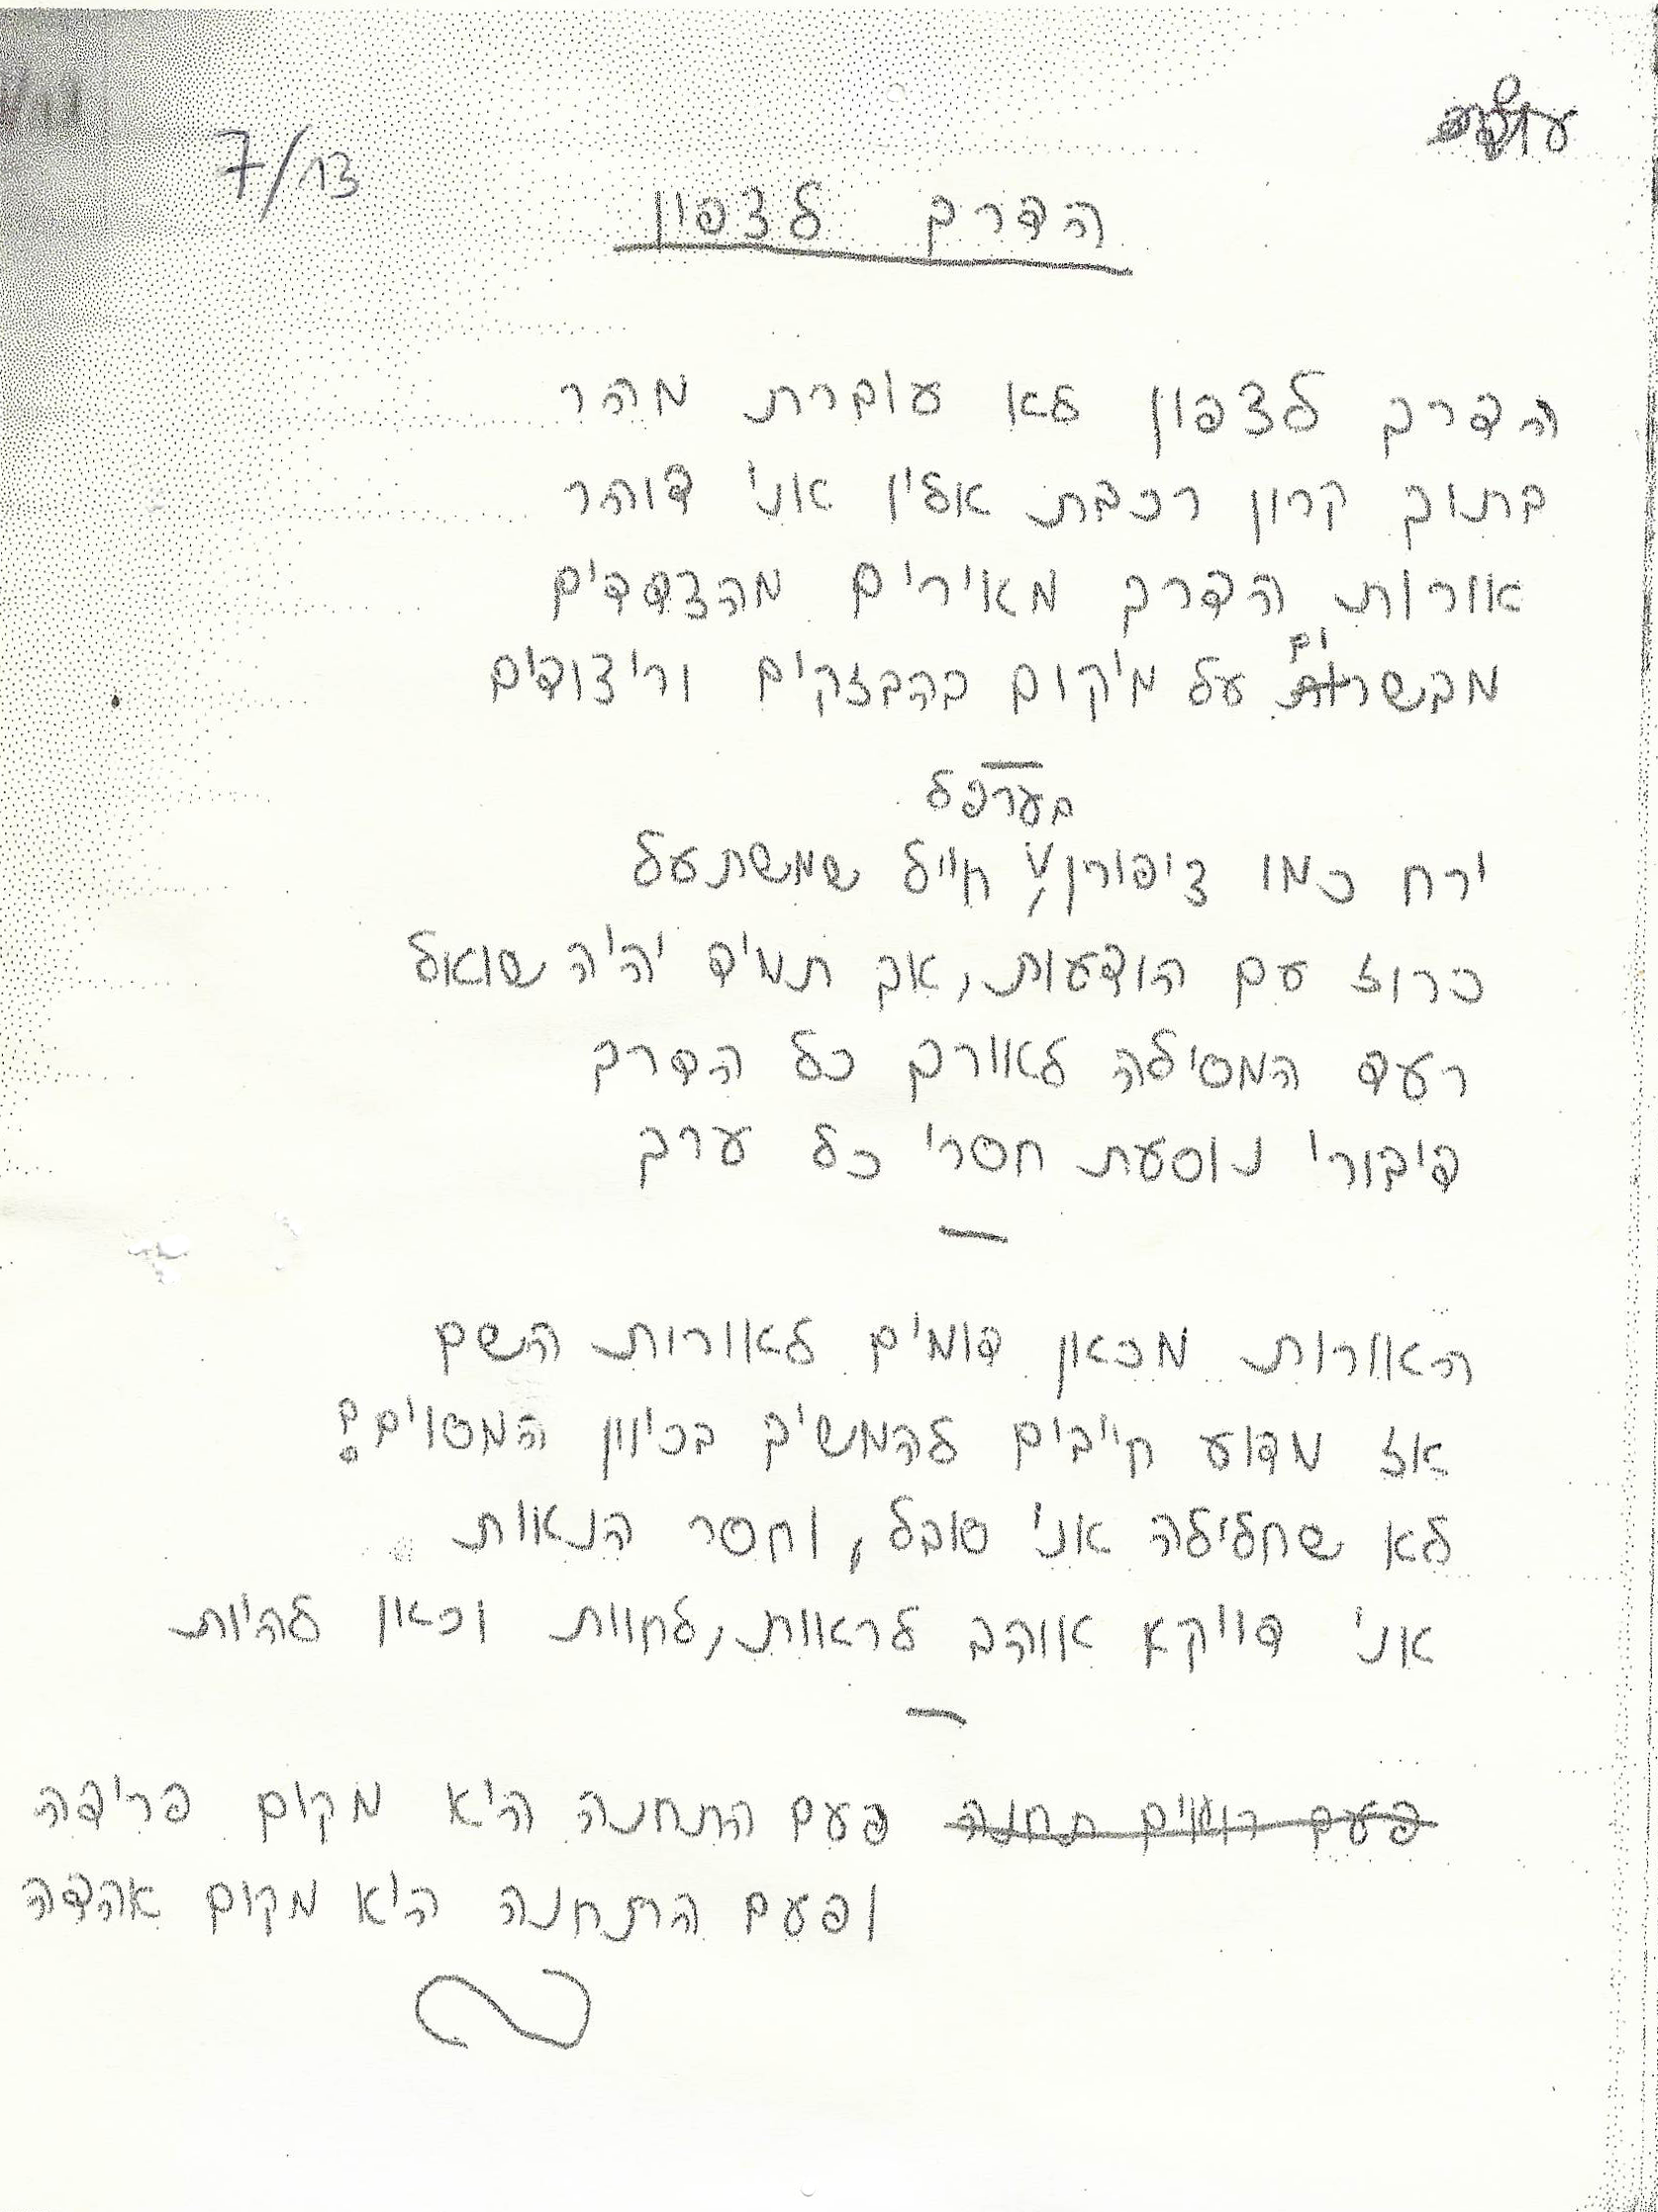 7/13
הדרך לצפון
הדרך לצפון לא עוברת מהר
בתוך קרון רכבת אליו אני דוהר
אורות הדרך מאירים מהצדדים
מבשרים על מיקום בהבזקים וריצודים
בערפל
ירח כמו ציפורן, חייל שמשתעל
כרוז עם הודעות, אך תמיד יהיה שואל
רעד המסילה לאורך כל הדרך
דיבורי נוסעת חסרי כל ערך
האורות מכאן דומים לאורות השם
אז מדוע חייבים להמשיך בכיוון המסוים?
לא שחלילה אני סובל, וחסר הנאות
אני דווקא אוהב לראות, לחוות וכאן להיות
פעם רואים תחנה פעם התחנה היא מקום פרידה
ופעם התחנה היא מקום אהדה